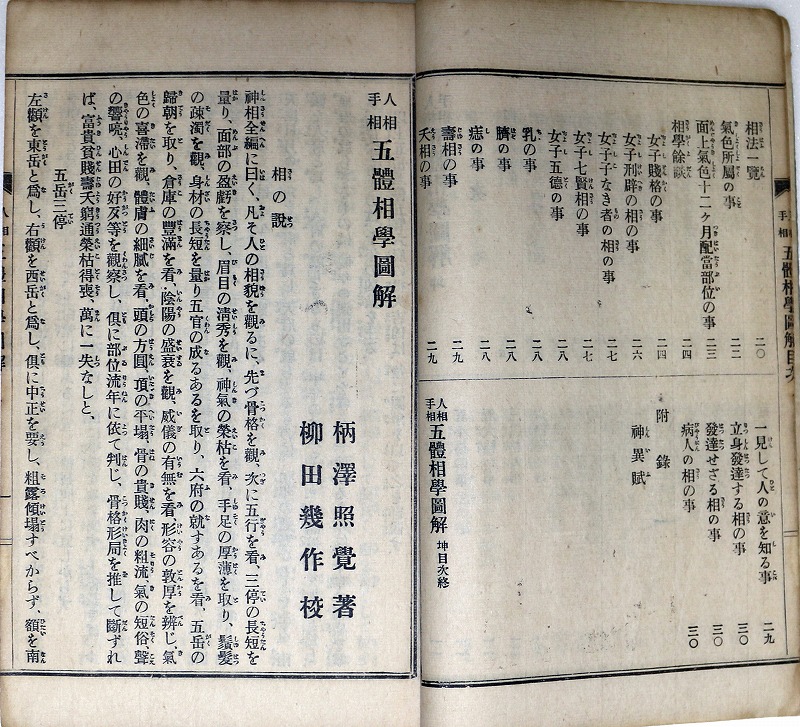 相法一覽 二〇
氣色所屬の事 二二
面上氣色十二ヶ月配當部位の事 二三
相學餘談 二四
女子賤格の事 二四
女子刑辟の相の事 二六
女子子なき者の相の事 二七
女子七賢相の事 二七
女子五德の事 二八
乳の事 二八
臍の事 二八
痣の事 二八
壽相の事 二九
夭相の事 二九
一見して人の意を知る事 二九
立身發達する相の事 三〇
發達せざる相の事 三〇
病人の相の事 三〇
附錄
神異賦
人相手相 五體相學圖解 坤目次終
人相手相 五體相學圖解
柄澤照覺著
柳田幾作校
相の説
神相全編に曰く、凡そ人の相貌を觀るに、先づ骨格を觀、次に五行を看、三停の長短を
量り、面部の盈虧を察し、眉目の淸秀を觀、神氣の榮枯を看、手足の厚薄を取り、鬚髮
の疎濁を觀、身材の長短を量り五官の成るあるを取り、六府の就すあるを看、五岳の
歸朝を取り、倉庫の豐滿を看、陰陽の盛衰を觀、威儀の有無を看、形容の敦厚を辨じ、氣
色の喜滯を觀、體膚の細膩を看、頭の方圓、頂の平塌、骨の貴賤、肉の粗流、氣の短俗、聲
の響喨、心田の好歹等を觀察し、俱に部位流年に依て判じ、骨格形局を推して斷ずれ
ば、富貴貧賤壽夭窮通榮枯得喪、萬に一失なしと、
五岳三停
左顴を東岳と爲し、右顴を西岳と爲し、俱に中正を要し、粗露傾塌すべからず、額を南